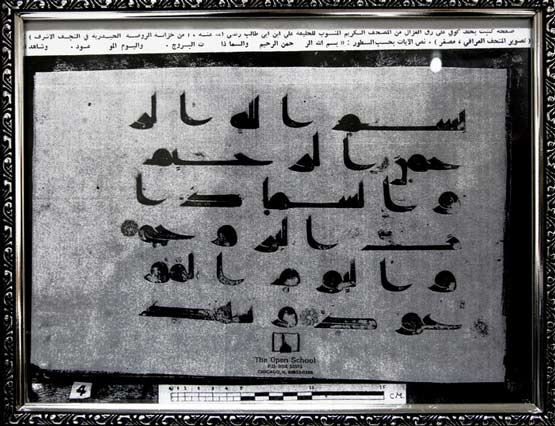 صفحته كتبت بخط كوفي على رق الغزال من المصحف الكريم المنسوب للخليفة علي ابن ابي طالب رضي الله عنه ، ( من خزانة الروضة الحيدرية في النجف الاشرف )
( تصوير المتحف العراقي ، مصغر ) . نص الآيات بحسب السطور : « بسم الله الر حمن الرحيم والسما ذا ت البروج . واليوم المو عود . وشاهد
بسم ا لله ا لر
حمن ا لر حيم
و ا لسما ذ ا
ت ا لبر و ج
و ا ليو م ا لمو
عو د و شا هد
The Open School
P.O. BOX 53573
CHICAGO, IL 60653-0398
4
CM.